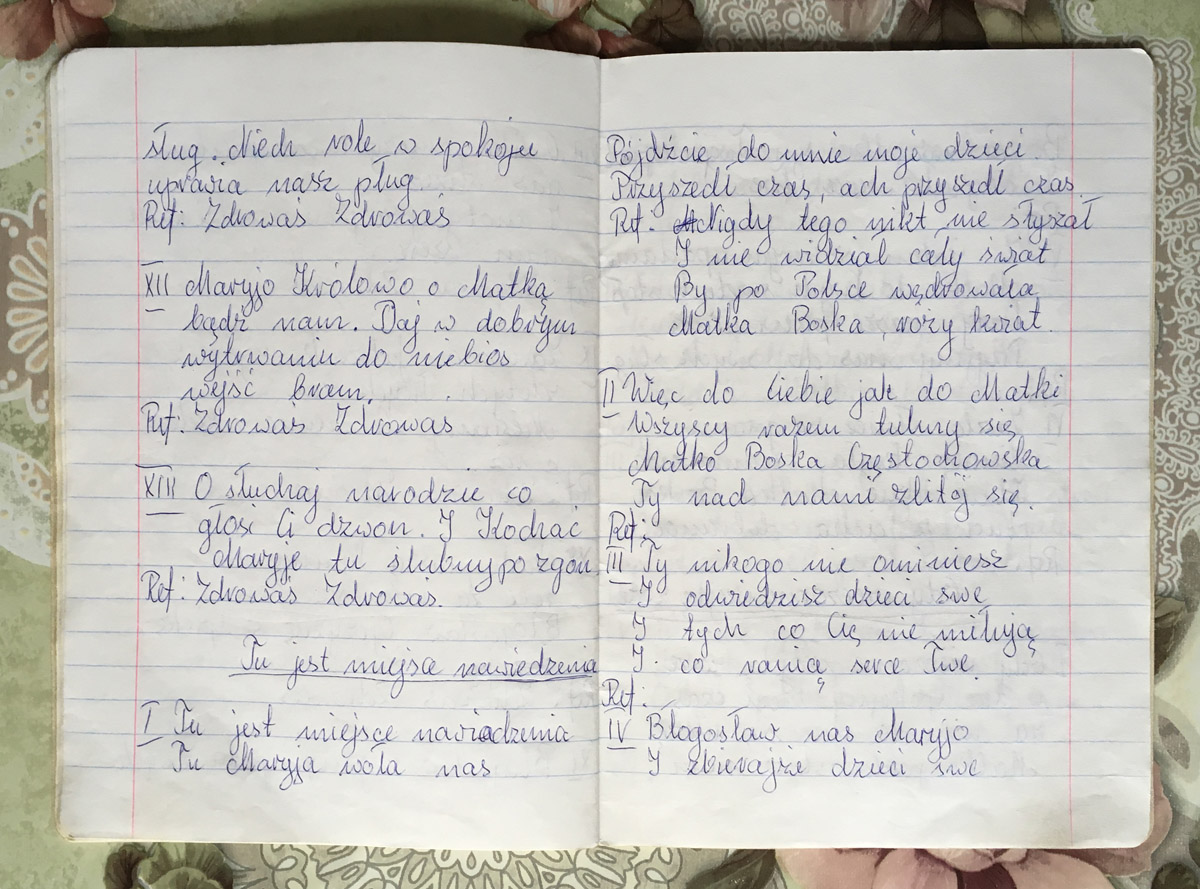 sług. Niech role w spokoju
uprawia nasz pług.
Ref: Zdrowaś Zdrowaś
XII Maryjo Królowo o Matką
bądź nam. Daj w dobrym
wytrwaniu do niebios
wejść bram.
Ref: Zdrowaś Zdrowaś
XIII O słuchaj narodzie co
głosi Ci dzwon. I Kochać
Maryję tu ślubuj po zgon
Ref: Zdrowaś Zdrowaś.
Tu jest miejsce nawiedzenia
I Tu jest miejsce nawiedzenia
Tu Maryja woła nas
Pójdźcie do mnie moje dzieci.
Przyszedł czas, ach przyszedł czas.
Ref. Nigdy tego nikt nie słyszał
I nie widział cały świat
By po Polsce wędrowała
Matka Boska, róży kwiat.
II Więc do Ciebie jak do Matki
Wszyscy razem tulimy się
Matko Boska Częstochowska
Ty nad nami zlitój się.
Ref:
III Ty nikogo nie ominiesz
I odwiedzisz dzieci swe
I tych co Cię nie miłują
I co ranią serce Twe.
Ref:
IV Błogosław nas Maryjo
I zbierajże dzieci swe